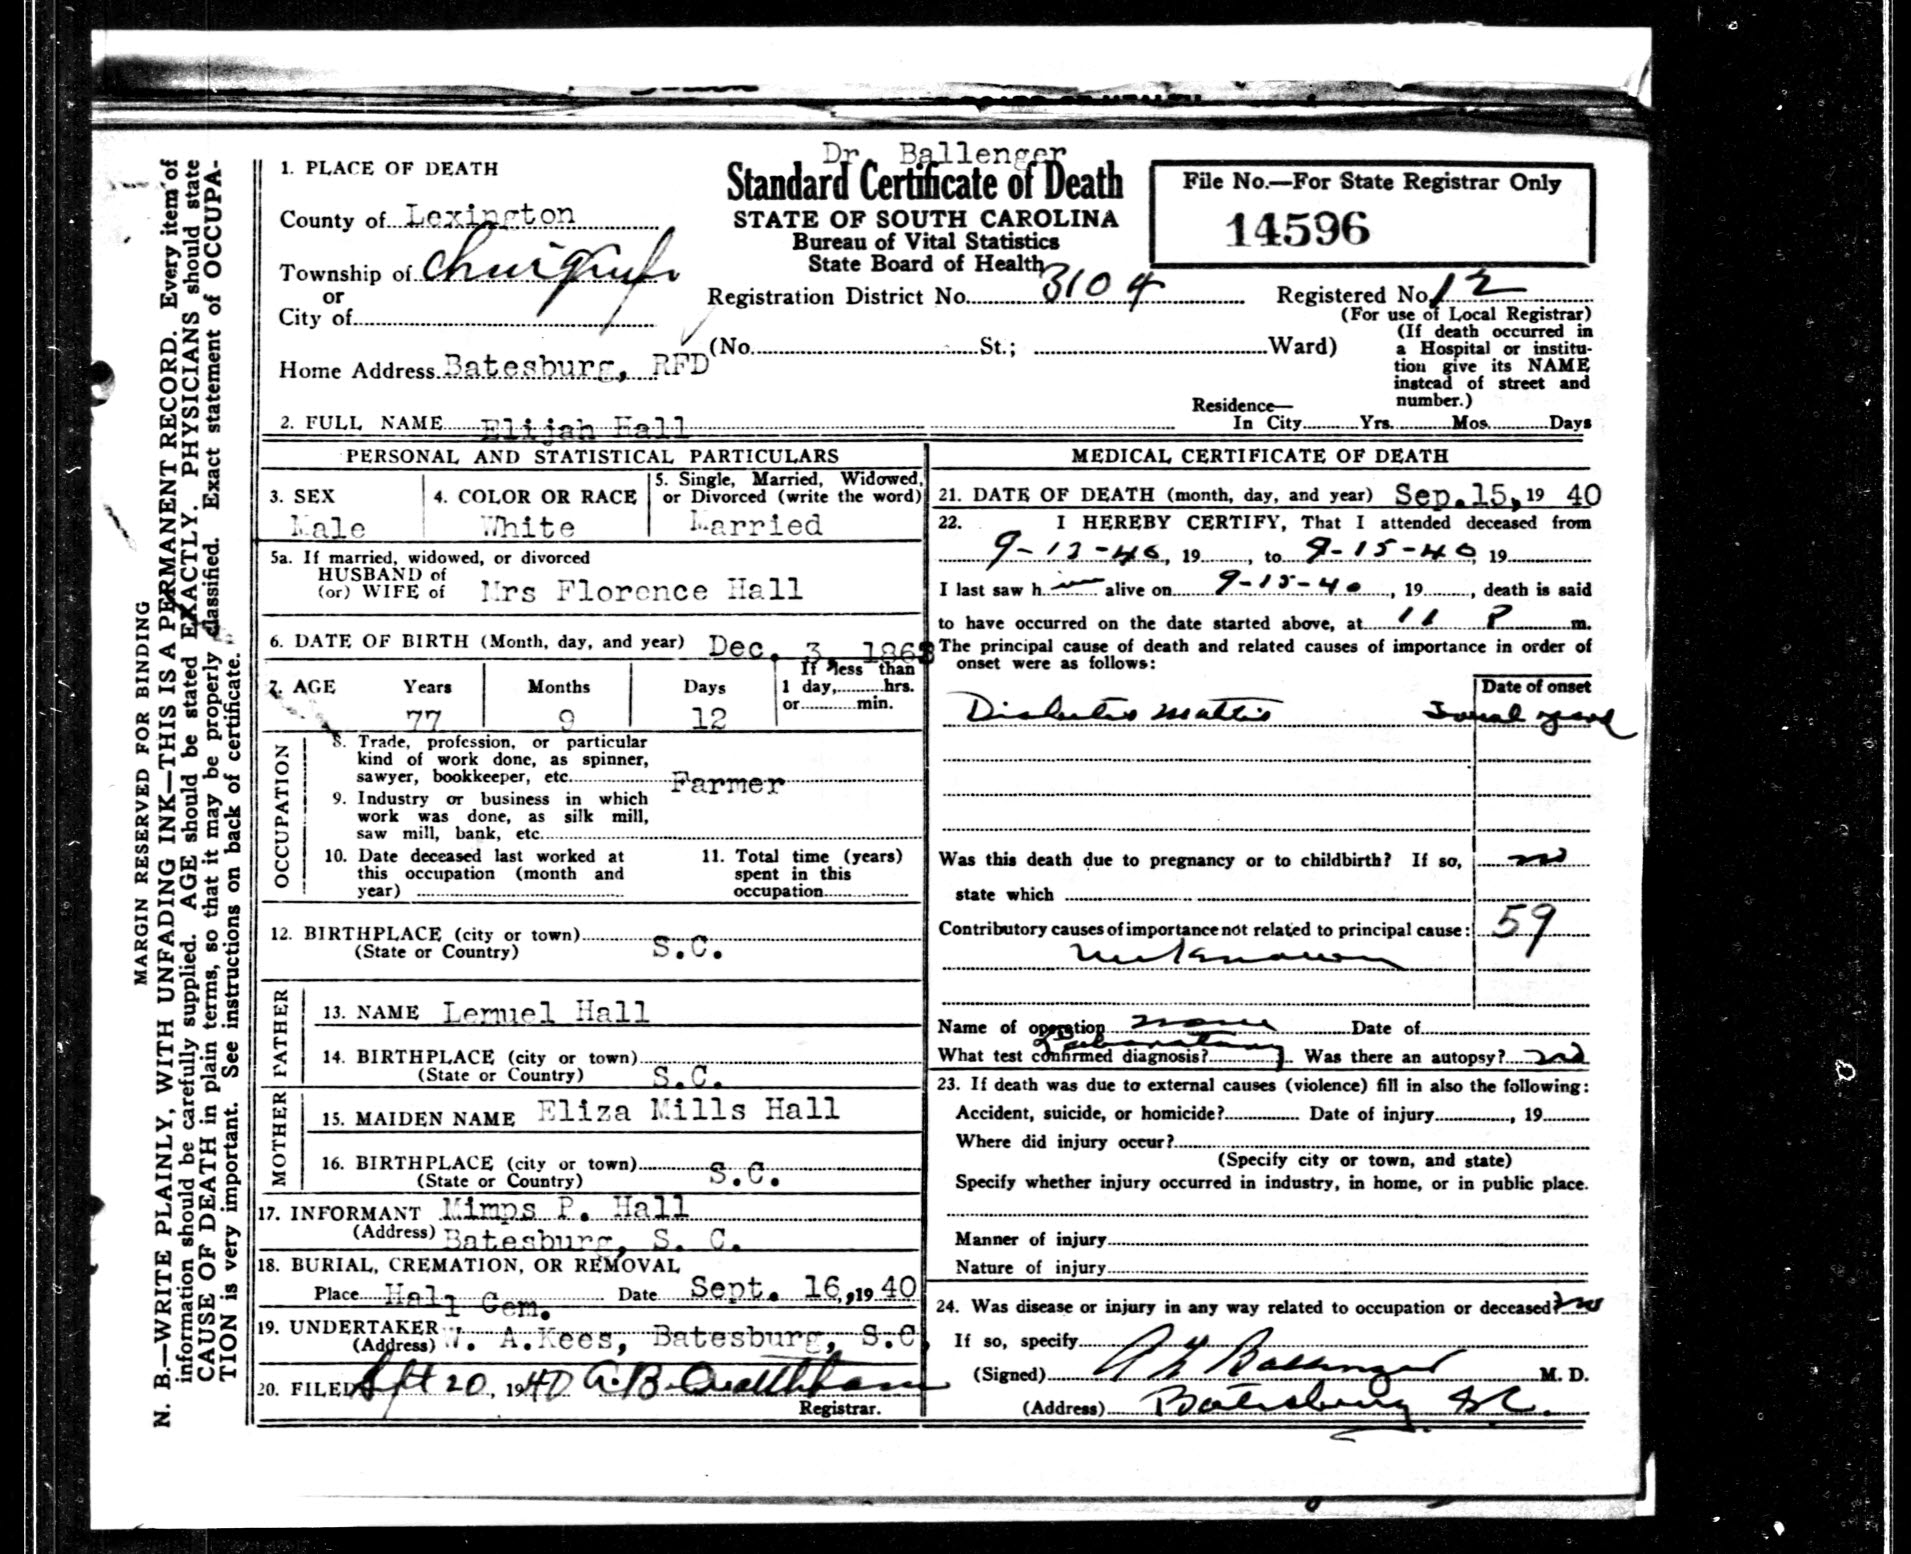 Dr Ballenger
1. PLACE OF DEATH
County of Lexington
Township of
or
City of
Home Address Batesburg, RFD
Standard Certificate of Death
STATE OF SOUTH CAROLINA
Bureau of Vital Statistics
State Board of Health
Registration District No. 3104
(No. St.; Ward)
File No.—For State Registrar Only
14596
Registered No. 12
(For use of Local Registrar)
(If death occurred in
a Hospital or institu-
tion give its NAME
instead of street and
number.)
Residence—
In City Yrs. Mos. Days
2. FULL NAME Elijah Hall
PERSONAL AND STATISTICAL PARTICULARS
3. SEX
Male
4. COLOR OR RACE
White
5. Single, Married, Widowed,
or Divorced (write the word)
Married
5a. If married, widowed, or divorced
HUSBAND of
(or) WIFE of Mrs Florence Hall
6. DATE OF BIRTH (Month, day, and year) Dec. 3, 1863
7. AGE Years Months Days
77 9 12
If less than
1 day, hrs.
or min.
OCCUPATION
8. Trade, profession, or particular
kind of work done, as spinner,
sawyer, bookkeeper, etc. Farmer
9. Industry or business in which
work was done, as silk mill,
saw mill, bank, etc.
10. Date deceased last worked at
this occupation (month and
year)
11. Total time (years)
spent in this
occupation
12. BIRTHPLACE (city or town) S.C.
(State or Country)
FATHER
13. NAME Lemuel Hall
14. BIRTHPLACE (city or town)
(State or Country) S.C.
MOTHER
15. MAIDEN NAME Eliza Mills Hall
16. BIRTHPLACE (city or town) S.C.
(State or Country)
17. INFORMANT Mimps P. Hall
(Address) Batesburg, S. C.
18. BURIAL, CREMATION, OR REMOVAL
Place Hall Cem. Date Sept. 16, 1940
19. UNDERTAKER W. A. Kees, Batesburg, S.C.
(Address)
20. FILED Sept 20, 1940 A. B.
Registrar.
MEDICAL CERTIFICATE OF DEATH
21. DATE OF DEATH (month, day, and year) Sep. 15, 19 40
22. I HEREBY CERTIFY, That I attended deceased from
9-12-40, 19 , to 9-15-40, 19
I last saw him alive on 9-15-40, 19 , death is said
to have occurred on the date started above, at 11 P m.
The principal cause of death and related causes of importance in order of
onset were as follows:
Date of onset
Diabetes
Was this death due to pregnancy or to childbirth? If so, no
state which
Contributory causes of importance not related to principal cause: 59
unknown
Name of operation none Date of
What test confirmed diagnosis? Laboratory Was there an autopsy? no
23. If death was due to external causes (violence) fill in also the following:
Accident, suicide, or homicide? Date of injury , 19
Where did injury occur?
(Specify city or town, and state)
Specify whether injury occurred in industry, in home, or in public place.
Manner of injury
Nature of injury
24. Was disease or injury in any way related to occupation or deceased? no
If so, specify
(Signed) Ballenger M. D.
(Address) Batesburg S.C.
MARGIN RESERVED FOR BINDING
N. B.—WRITE PLAINLY, WITH UNFADING INK—THIS IS A PERMANENT RECORD. Every item of
information should be carefully supplied. AGE should be stated EXACTLY. PHYSICIANS should state
CAUSE OF DEATH in plain terms, so that it may be properly classified. Exact statement of OCCUPA-
TION is very important. See instructions on back of certificate.